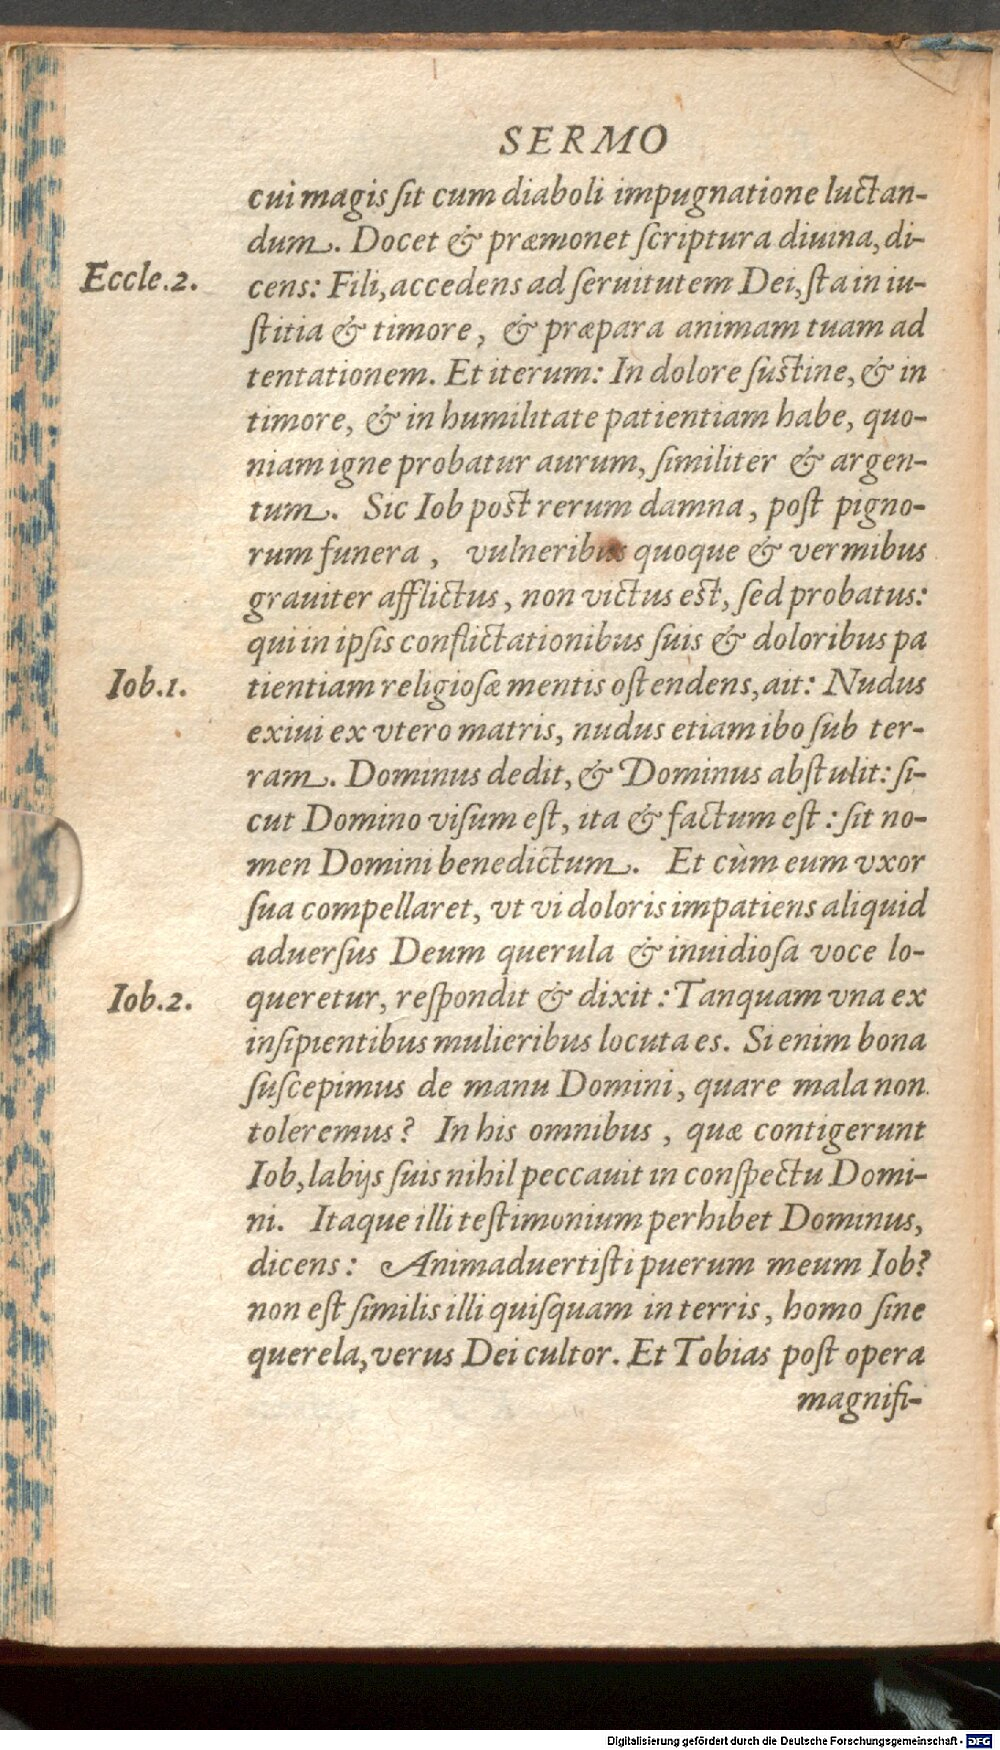 SERMO
cui magis ſit cum diaboli impugnatione luctan-
dum. Docet & præmonet ſcriptura diuina, di-
Eccle.2.
cens: Fili, accedens ad ſeruitutem Dei, ſta in iu-
ſtitia & timore, & præpara animam tuam ad
tentationem. Et iterum: In dolore ſuſtine, & in
timore, & in humilitate patientiam habe, quo-
niam igne probatur aurum, ſimiliter & argen-
tum. Sic Iob poſt rerum damna, poſt pigno-
rum funera, vulneribus quoque & vermibus
grauiter afflictus, non victus eſt, ſed probatus:
qui in ipſis conflictationibus ſuis & doloribus pa
Iob.1.
tientiam religioſæ mentis oſtendens, ait: Nudus
exiui ex vtero matris, nudus etiam ibo ſub ter-
ram. Dominus dedit, & Dominus abſtulit: ſi-
cut Domino viſum eſt, ita & factum eſt: ſit no-
men Domini benedictum. Et cùm eum vxor
ſua compellaret, vt vi doloris impatiens aliquid
aduerſus Deum querula & inuidioſa voce lo-
Iob.2.
queretur, reſpondit & dixit: Tanquam vna ex
inſipientibus mulieribus locuta es. Si enim bona
ſuſcepimus de manu Domini, quare mala non
toleremus? In his omnibus, quæ contigerunt
Iob, labijs ſuis nihil peccauit in conſpectu Domi-
ni. Itaque illi teſtimonium perhibet Dominus,
dicens: Animaduertiſti puerum meum Iob?
non eſt ſimilis illi quiſquam in terris, homo ſine
querela, verus Dei cultor. Et Tobias poſt opera
magnifi-
Digitalisierung gefördert durch die Deutsche Forschungsgemeinschaft - DFG